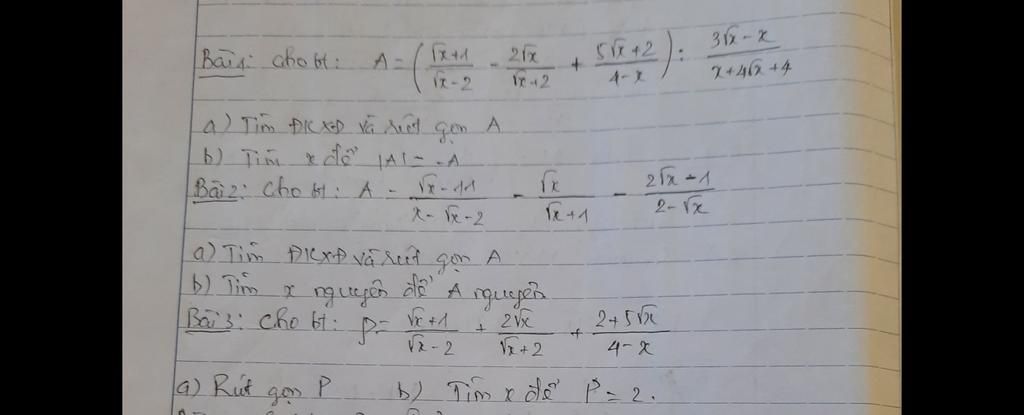 Bài 1: Cho bt: A = (√x+1/√x-2 - 2√x/√x+2 + 5√x+2/4-x) : 3√x-x/x+4√x+4
a) Tìm ĐKXĐ và rút gọn A
b) Tìm x để |A| = -A
Bài 2: Cho bt: A = √x-11/x-√x-2 - √x/√x+1 - 2√x-1/2-√x
a) Tìm ĐKXĐ và rút gọn A
b) Tìm x nguyên để A nguyên
Bài 3: Cho bt: P = √x+1/√x-2 + 2√x/√x+2 + 2+5√x/4-x
a) Rút gọn P b) Tìm x để P = 2.